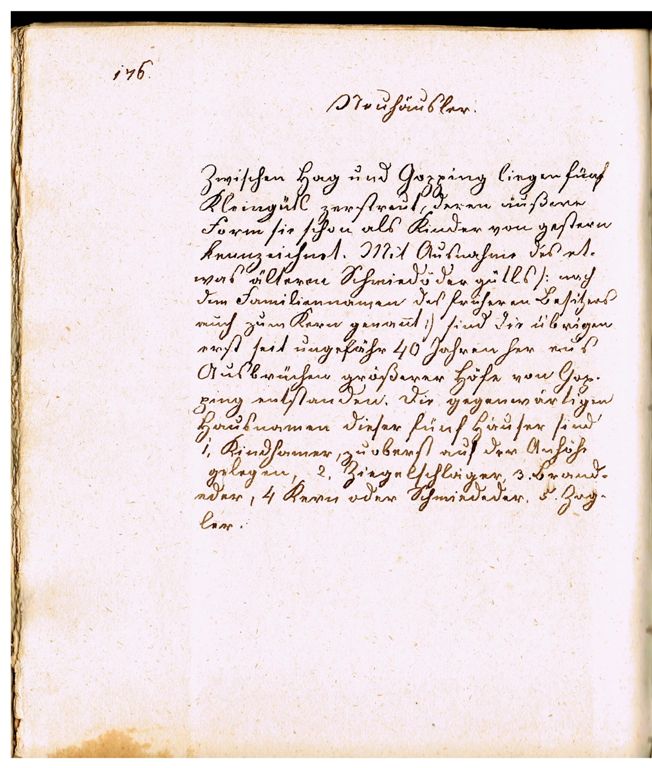 176.
Neuhäusler.
Zwischen Hag und Gopping liegen fünf
Kleingütl zerstreut, deren äußere
Form sie schon als Kinder von gestern
kennzeichnet. Mit Ausnahme des et-
was älteren Schmiedödergütls /: nach
dem Familiennamen des früheren Besitzers
auch zum Kern genannt :/ sind die übrigen
erst seit ungefähr 40 Jahren her aus
Ausbrüchen größerer Höfe von Gop-
ping entstanden. Die gegenwärtigen
Hausnamen dieser fünf Häuser sind
1, Kindhamer, zuoberst auf der Anhöhe
gelegen, 2, Ziegelschlager, 3. Brand-
eder, 4 Kern oder Schmiededer. 5. Zog-
ler.